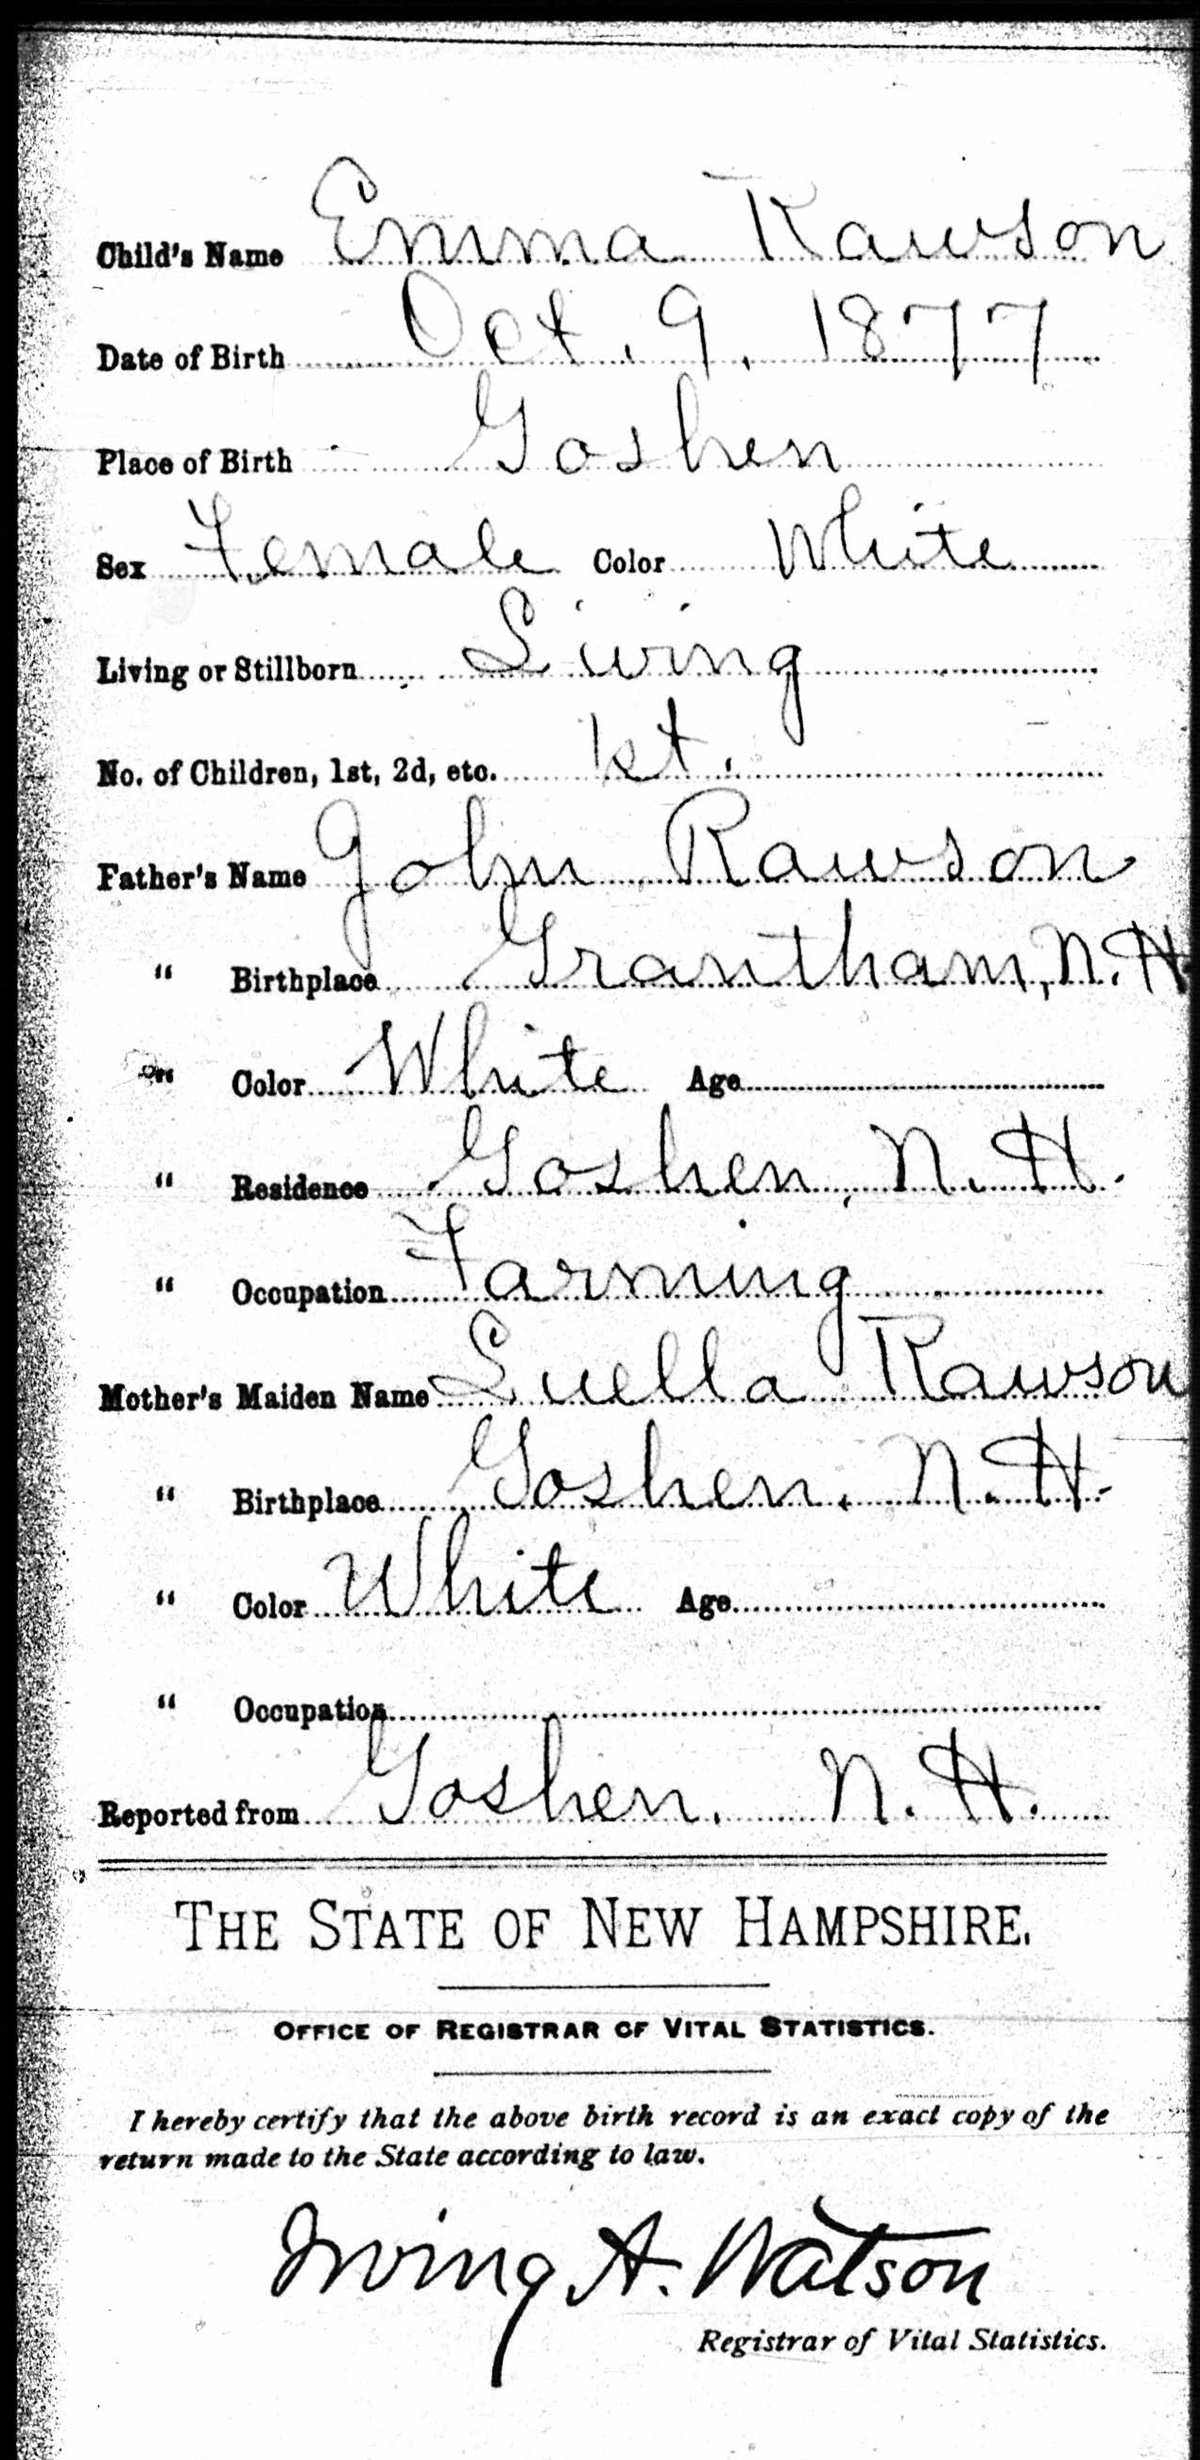 Child's Name Emma Rawson
Date of Birth Oct. 9, 1877
Place of Birth Goshen
Sex Female Color White
Living or Stillborn Living
No. of Children, 1st, 2d, etc. 1st.
Father's Name John Rawson
" Birthplace Grantham, N.H.
" Color White Age
" Residence Goshen, N.H.
" Occupation Farming
Mother's Maiden Name Luella Rawson
" Birthplace Goshen. N.H.
" Color White Age
" Occupation
Reported from Goshen, N.H.
THE STATE OF NEW HAMPSHIRE.
OFFICE OF REGISTRAR OF VITAL STATISTICS.
I hereby certify that the above birth record is an exact copy of the
return made to the State according to law.
Irving A. Watson
Registrar of Vital Statistics.